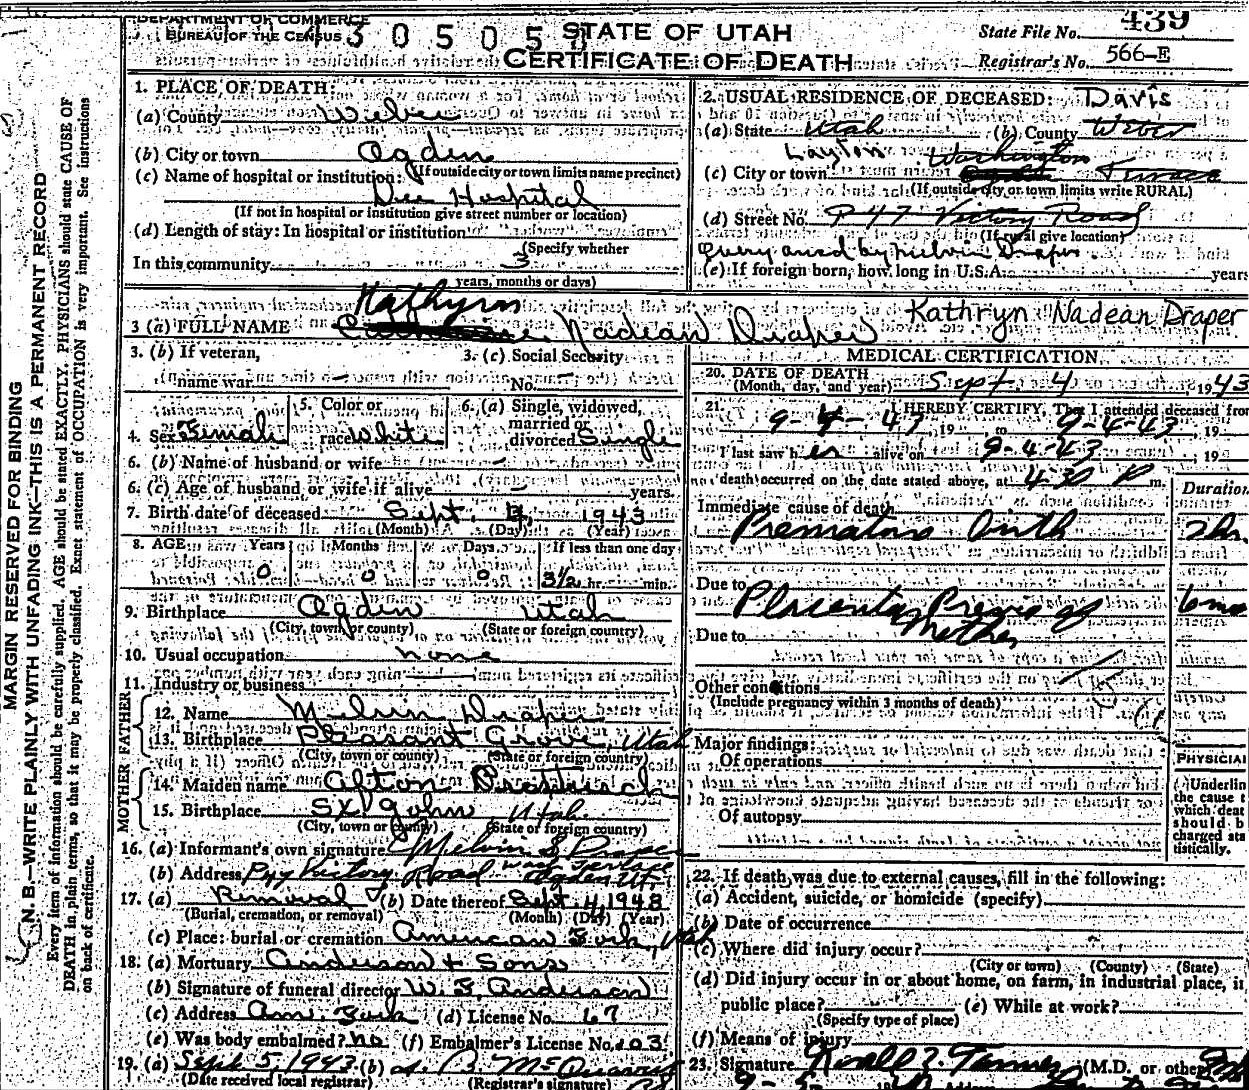 DEPARTMENT OF COMMERCE
BUREAU OF THE CENSUS
STATE OF UTAH
CERTIFICATE OF DEATH
State File No. 439
Registrar's No. 566-E
MARGIN RESERVED FOR BINDING
N. B.—WRITE PLAINLY WITH UNFADING INK—THIS IS A PERMANENT RECORD
Every item of information should be carefully supplied. AGE should be stated EXACTLY. PHYSICIANS should state CAUSE OF
DEATH in plain terms, so that it may be properly classified. Exact statement of OCCUPATION is very important. See instructions
on back of certificate.
1. PLACE OF DEATH:
(a) County Weber
(b) City or town Ogden
(If outside city or town limits name precinct)
(c) Name of hospital or institution:
Dee Hospital
(If not in hospital or institution give street number or location)
(d) Length of stay: In hospital or institution
(Specify whether
In this community 3
years, months or days)
2. USUAL RESIDENCE OF DECEASED: Davis
(a) State Utah (b) County Weber
Layton Washington
(c) City or town Terrace
(If outside city or town limits write RURAL)
(d) Street No. P-47 Victory Road
(If rural give location)
Query ansd by Melvin Draper
(e) If foreign born, how long in U.S.A. years
Kathryn
3 (a) FULL NAME Nadean Draper Kathryn Nadean Draper
3. (b) If veteran,
name war –
3. (c) Social Security
No. –
4. Sex Female
5. Color or
race White
6. (a) Single, widowed,
married or
divorced Single
6. (b) Name of husband or wife –
6. (c) Age of husband or wife if alive – years.
7. Birth date of deceased Sept. 4, 1943
(Month) (Day) (Year)
8. AGE Years Months Days If less than one day
0 0 0 3½ hr. min.
9. Birthplace Ogden Utah
(City, town or county) (State or foreign country)
10. Usual occupation none
11. Industry or business
FATHER
12. Name Melvin Draper
13. Birthplace Pleasant Grove, Utah
(City, town or county) (State or foreign country)
MOTHER
14. Maiden name Afton
15. Birthplace St John Utah
(City, town or county) (State or foreign country)
16. (a) Informant's own signature Melvin S Draper
(b) Address P47 Victory Road Wash Terrace
Ogden Ut.
17. (a) Removal (b) Date thereof Sept. 4, 1943
(Burial, cremation, or removal) (Month) (Day) (Year)
(c) Place: burial or cremation American Fork, Utah
18. (a) Mortuary Anderson & Sons
(b) Signature of funeral director W. E. Anderson
(c) Address Am. Fork (d) License No. 67
(e) Was body embalmed? no (f) Embalmer's License No. 103
19. (a) Sept 5, 1943 (b)
(Date received local registrar) (Registrar's signature)
MEDICAL CERTIFICATION
20. DATE OF DEATH
(Month, day, and year) Sept. 4, 1943
21. I HEREBY CERTIFY, That I attended deceased from
9-4-43, 19 to 9-4-43, 19
I last saw her alive on 9-4-43, 19
death occurred on the date stated above, at 4:30 P m.
Duration
Immediate cause of death
Premature birth 2 hr.
Due to
Placenta Previa of 6 mo
Mother
Due to
Other conditions
(Include pregnancy within 3 months of death)
Major findings:
Of operations
Of autopsy
PHYSICIAN
Underlin
the cause t
which deat
should b
charged sta
tistically.
22. If death was due to external causes, fill in the following:
(a) Accident, suicide, or homicide (specify)
(b) Date of occurrence
(c) Where did injury occur?
(City or town) (County) (State)
(d) Did injury occur in or about home, on farm, in industrial place, in
public place?
(Specify type of place)
(e) While at work?
(f) Means of injury
23. Signature Tanner (M.D. or other)